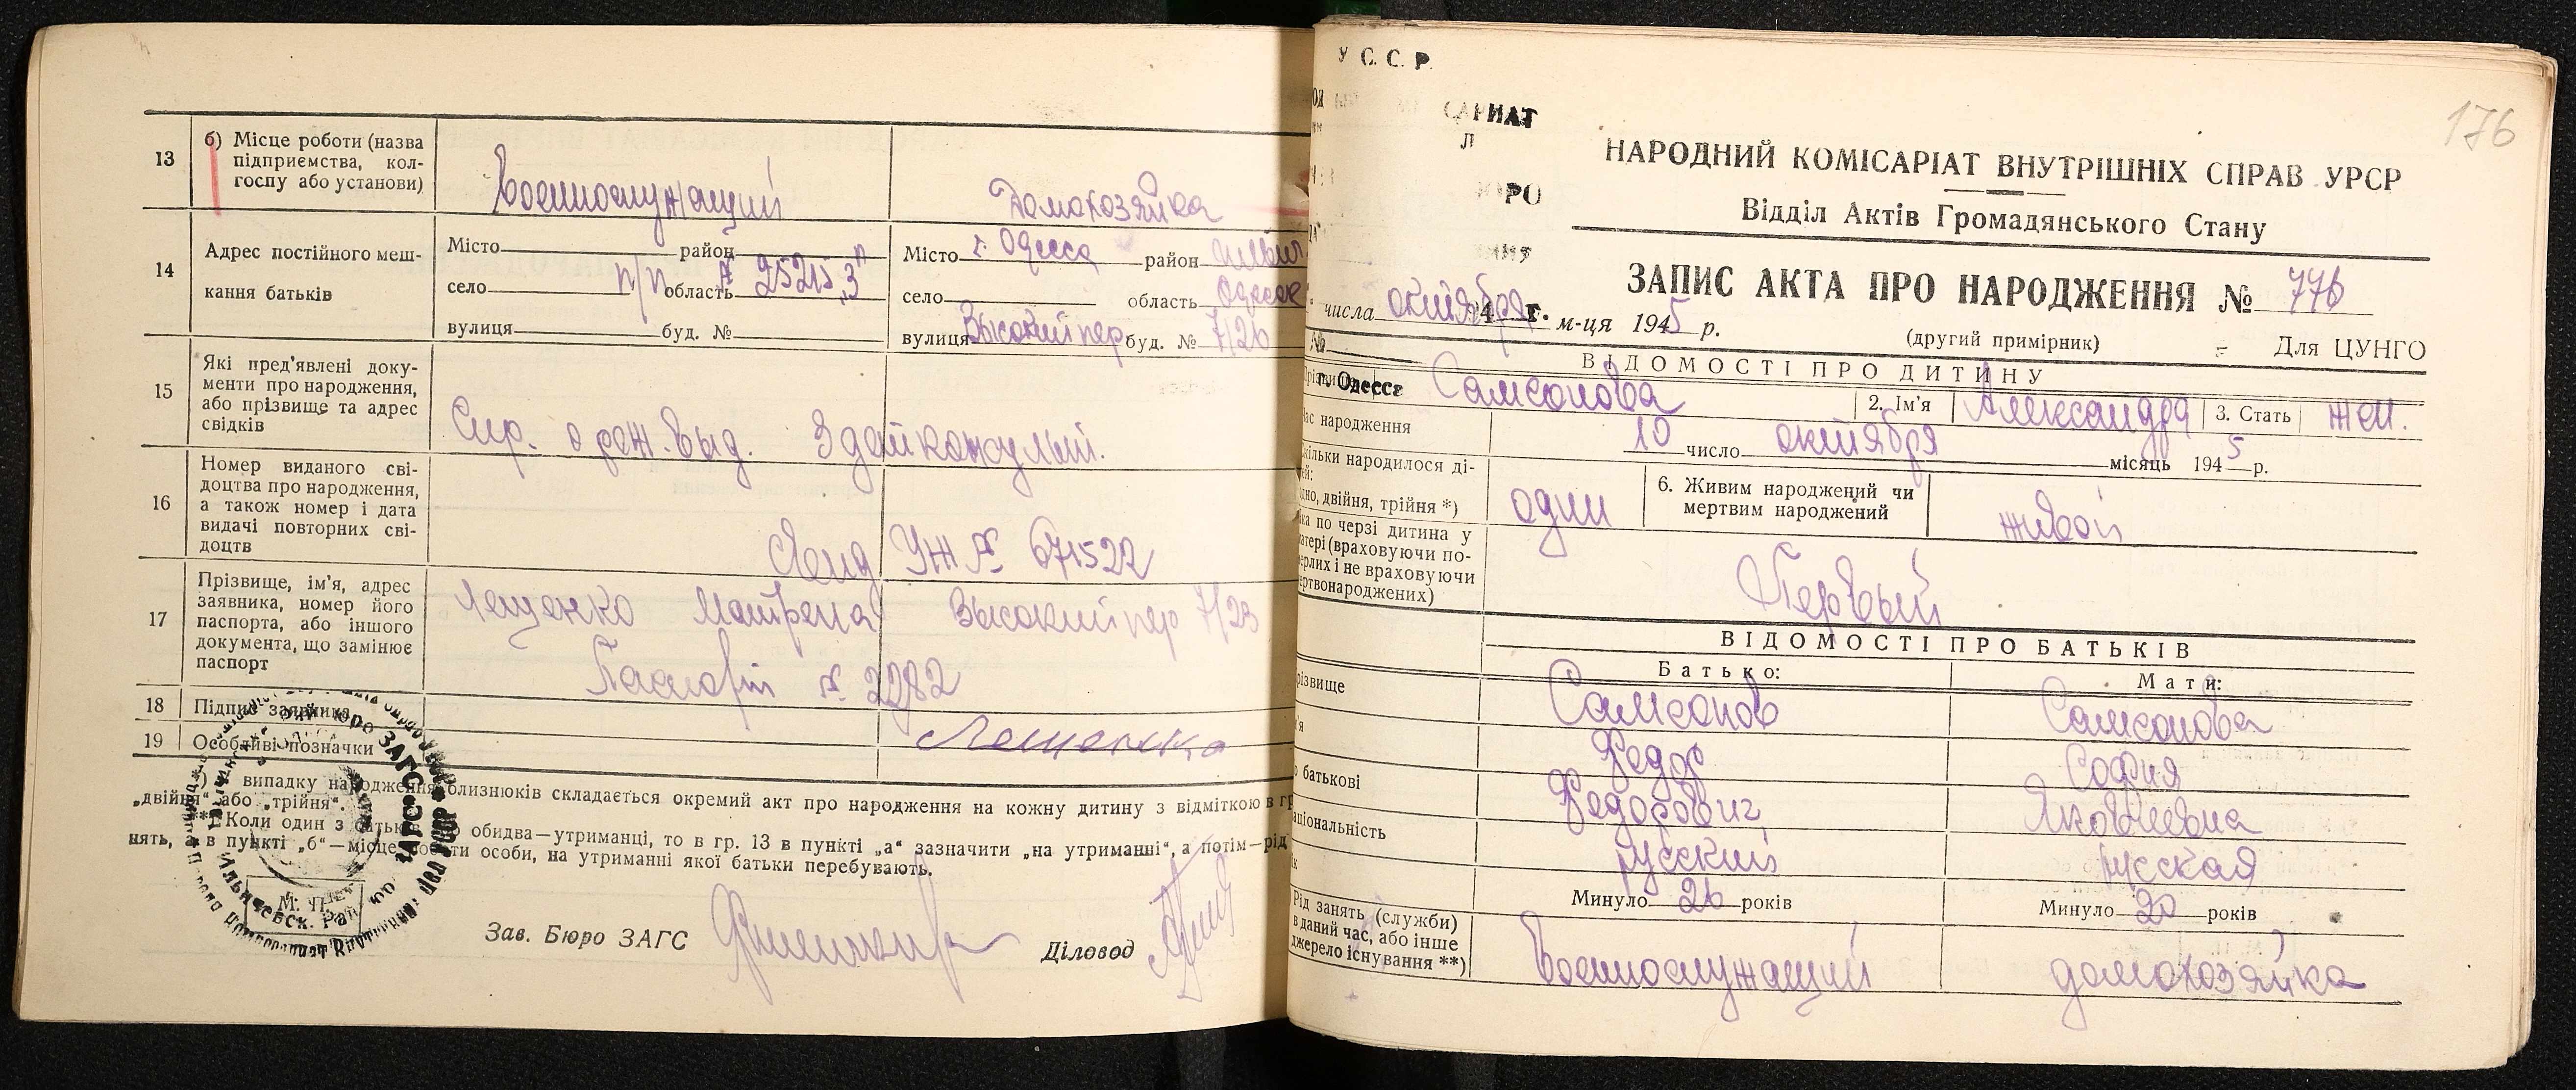 13
б) Місце роботи (назва
підприємства, кол-
госпу або установи)
Военнослужащий
Домохозяйка
14
Адрес постійного меш-
кання батьків
Місто район
село п/п область № 25215
вулиця буд. №
Місто г. Одесса район
село область
вулиця Высокий пер буд. № 7/26
15
Які пред'явлені доку-
менти про народження,
або прізвище та адрес
свідків
Спр. о рож. выд.
16
Номер виданого сві-
доцтва про народження,
а також номер і дата
видачі повторних сві-
доцтв
УЖ № 671522
17
Прізвище, ім'я, адрес
заявника, номер його
паспорта, або іншого
документа, що замінює
паспорт
Лещенко Матрена Высокий пер 7/23
Паспорт № 2282
18
Підпис заявника
19
Особливі позначки
Лещенко
випадку народження близнюків складається окремий акт про народження на кожну дитину з відміткою в гр
„двійня“ або „трійня“.
**) Коли один з батьків обидва—утриманці, то в гр. 13 в пункті „а“ зазначити „на утриманні“, а потім—рід
нять, а в пункті „б“—місце роботи особи, на утриманні якої батьки перебувають.
М. П.
Зав. Бюро ЗАГС
Діловод
176
У С. С. Р.
САРИАТ
РО
НАРОДНИЙ КОМІСАРІАТ ВНУТРІШНІХ СПРАВ УРСР
Відділ Актів Громадянського Стану
ЗАПИС АКТА ПРО НАРОДЖЕННЯ № 776
числа октября м-ця 1945 р.
(другий примірник)
Для ЦУНГО
ВІДОМОСТІ ПРО ДИТИНУ
г. Одесса Самсонова 2. Ім'я Александра 3. Стать жен.
час народження 10 число октября місяць 1945 р.
кільки народилося ді-
ей:
дно, двійня, трійня *)
один
6. Живим народжений чи
мертвим народжений
живой
ка по черзі дитина у
атері (враховуючи по-
ерлих і не враховуючи
ертвонароджених)
Первый
ВІДОМОСТІ ПРО БАТЬКІВ
Батько: Мати:
різвище Самсонов Самсонова
м'я Федор София
о батькові Федорович Яковлевна
аціональність русский русская
ік Минуло 26 років Минуло 20 років
Рід занять (служби)
в даний час, або інше
джерело існування **)
Военнослужащий домохозяйка